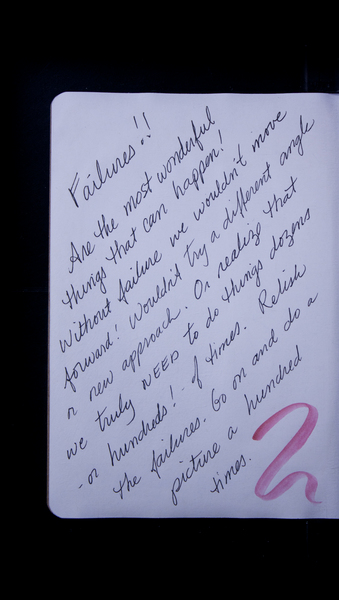 Failures!!
Are the most wonderful
things that can happen!
Without failure we wouldn't move
forward! Wouldn't try a different angle
or new approach. Or realize that
we truly NEED to do things dozens
- or hundreds! - of times. Relish
the failures. Go on and do a
picture a hundred
times.